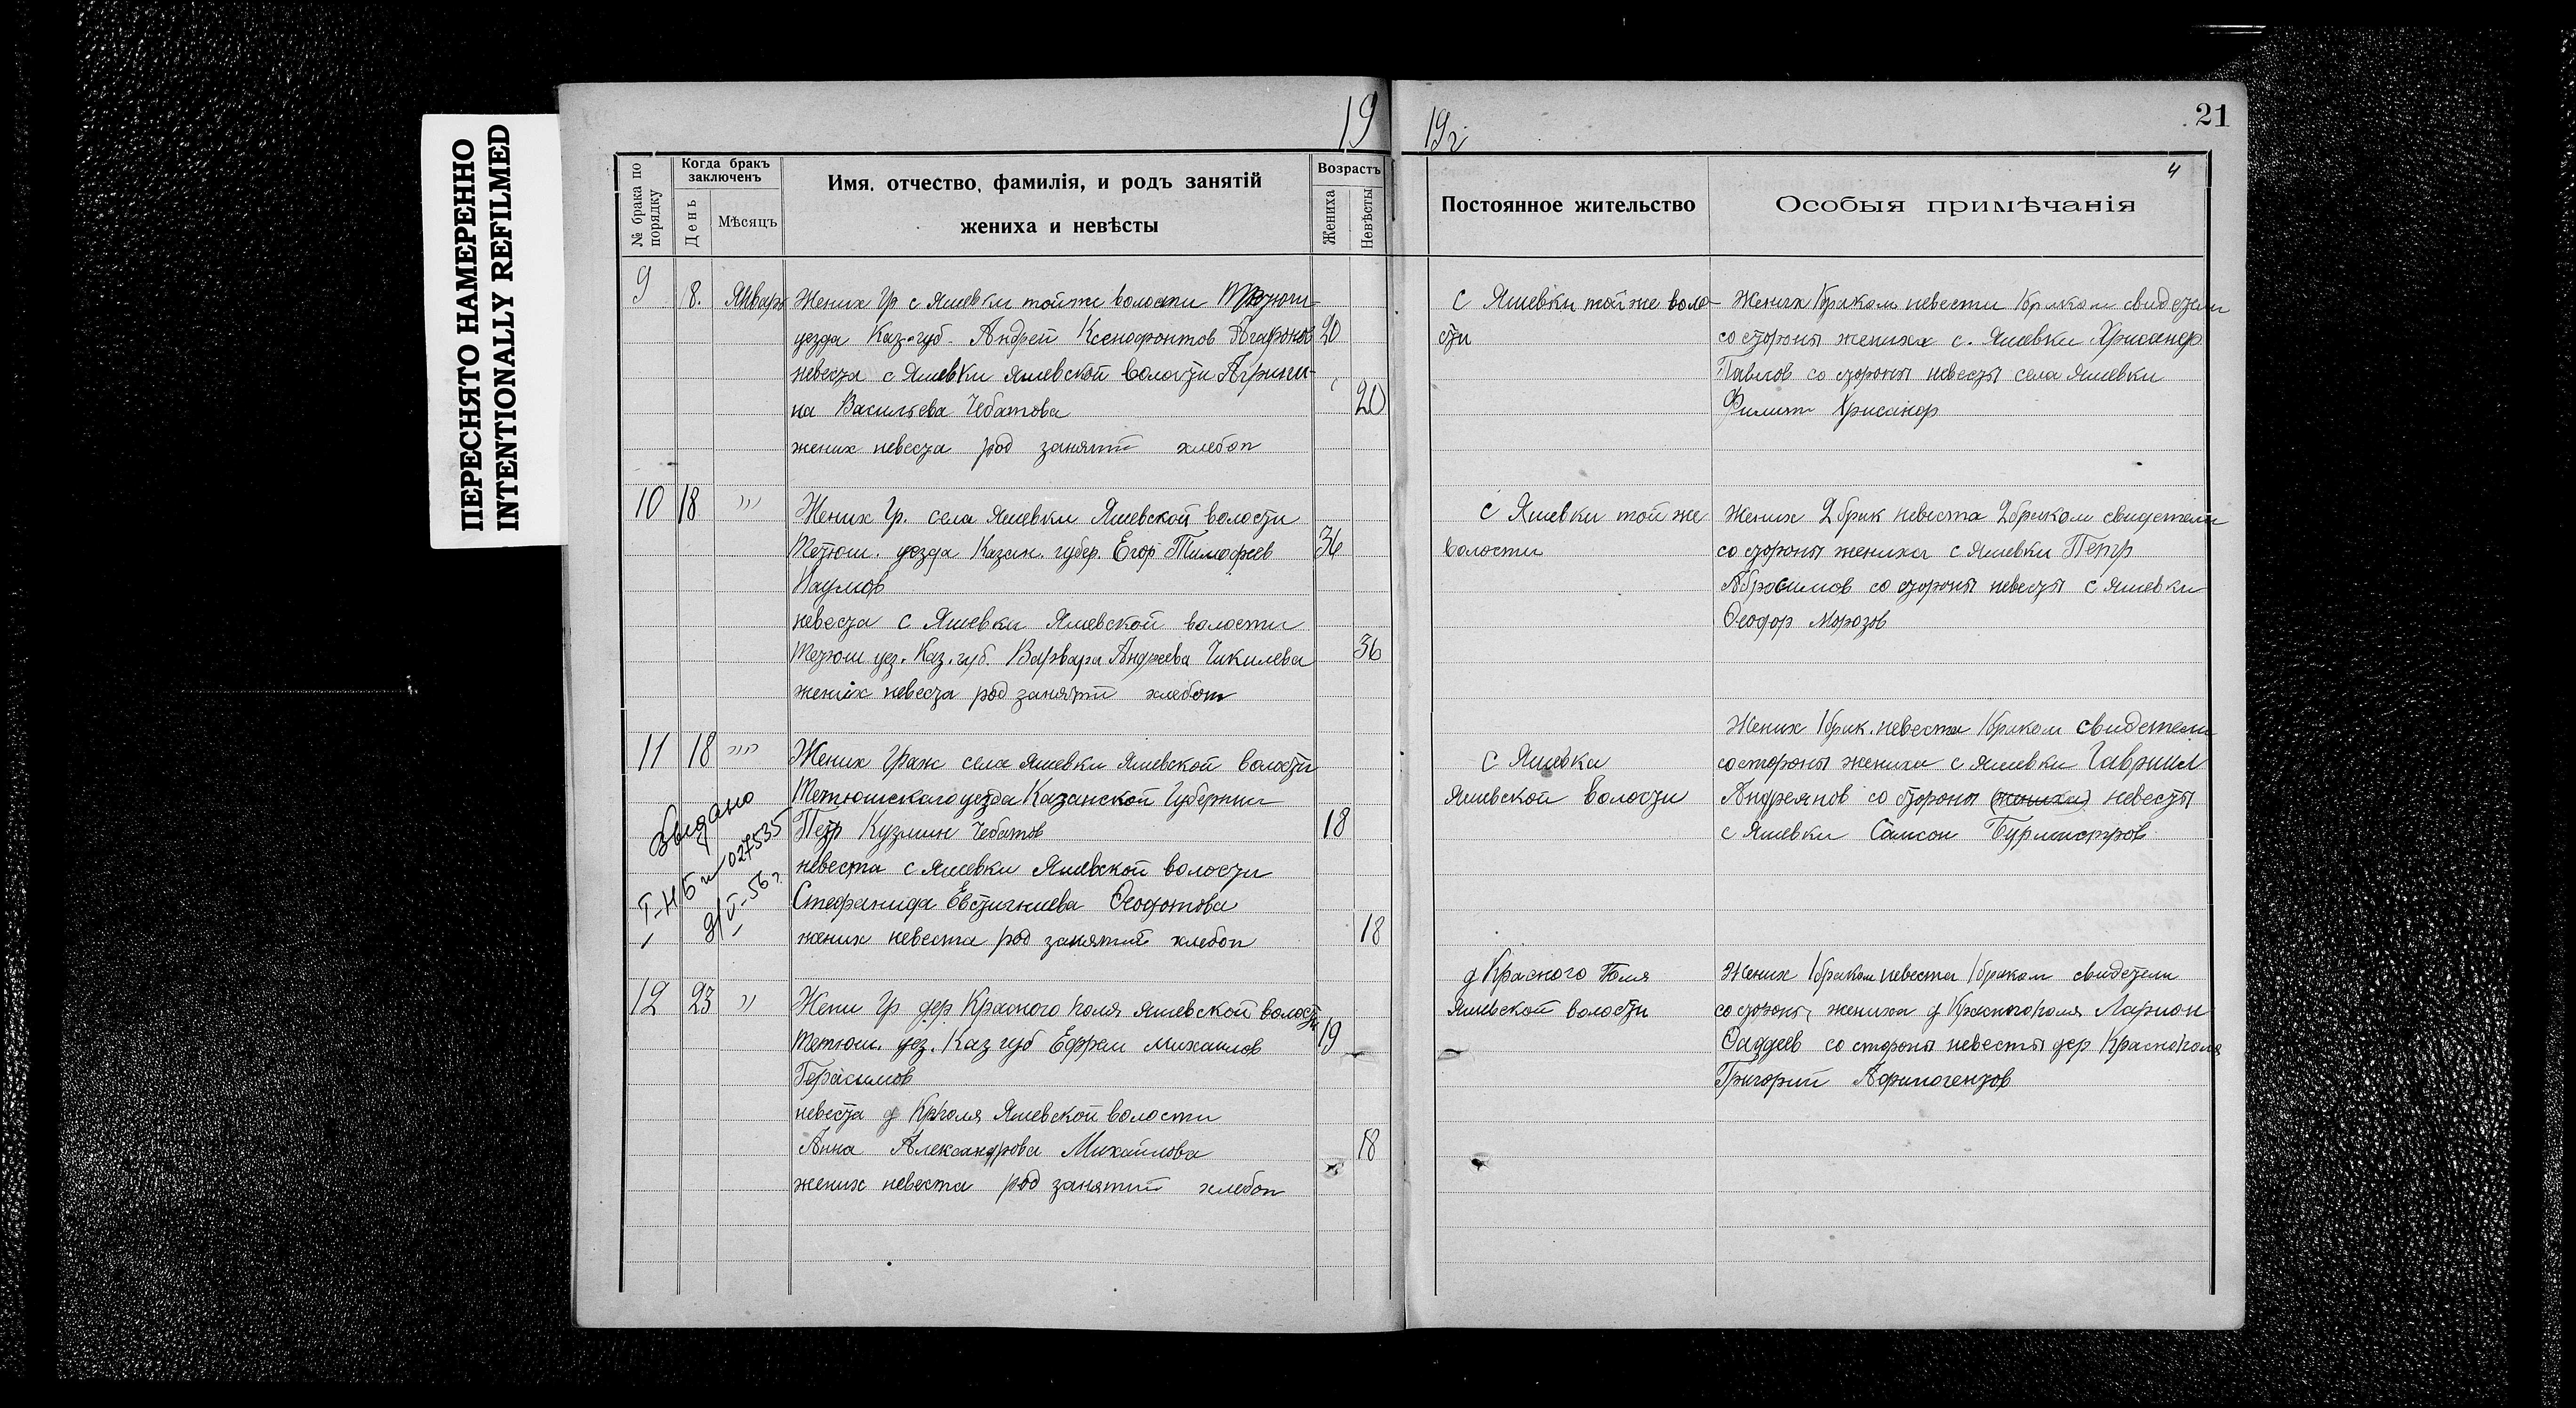 ПЕРЕСНЯТО НАМЕРЕННО
INTENTIONALLY REFILMED
19 19 г
21
4
№ брака по порядку
Когда бракъ заключенъ
День
Мѣсяцъ
Имя, отчество, фамилія, и родъ занятій
жениха и невѣсты
Возрастъ
Жениха
Невѣсты
Постоянное жительство
Особыя примѣчанія
9 8. Январь Жених Гр с Яшевки той же волости
уезда Каз. губ. Андрей Ксенофонтов Агафонов 20
невеста с Яшевки Яшевской волости Агрипи-
на Васильева Чебатова 20
жених невеста род занятий хлебоп
с Яшевки той же воло-
сти
Жених 1 браком невести 1 браком свидетели
со стороны жениха с. Яшевки Хрисанф
Павлов со стороны невесты села Яшевки
Филипп Хрисанф
10 18 " Жених Гр. села Яшевки Яшевской волости
Тетюш. уезда Казан. губер. Егор Тимофеев 36
Наумов
невеста с Яшевки Яшевской волости
Тетюш уез. Каз. губ. Варвара Андреева Чикилева 36
жених невеста род занятий хлебоп
с Яшевки той же
волости
Жених 2 брак невеста 2 браком свидетели
со стороны жениха с Яшевки Петр
Абросимов со стороны невесты с Яшевки
Феодор Морозов
11 18 " Жених Граж села Яшевки Яшевской волости
Тетюшского уезда Казанской Губернии
Петр Кузмин Чебатов 18
невеста с Яшевки Яшевской волости
Стефанида Евстигниева Феофотова
жених невеста род занятий хлебоп 18
Выдано
I-НБ № 027535
9/V-56 г.
с Яшевка
Яшевской волости
Жених 1 брак. невеста 1 браком свидетели
со стороны жениха с Яшевки Гавриил
Андреянов со стороны (жениха) невесты
с Яшевки Самсон Бурмистров
12 23 " Жени Гр дер Красного поля Яшевской волости
Тетюш. уез. Каз губ Ефрем Михаилов 19
Герасимов
невеста д Кр поля Яшевской волости
Анна Александрова Михайлова 18
жених невеста род занятий хлебоп
д Красного Поля
Яшевской волости
Жених 1 браком невеста 1 браком свидетели
со стороны жениха д Красного поля Ларион
Фаддеев со стороны невесты дер Краснополя
Григорий Афиногентов